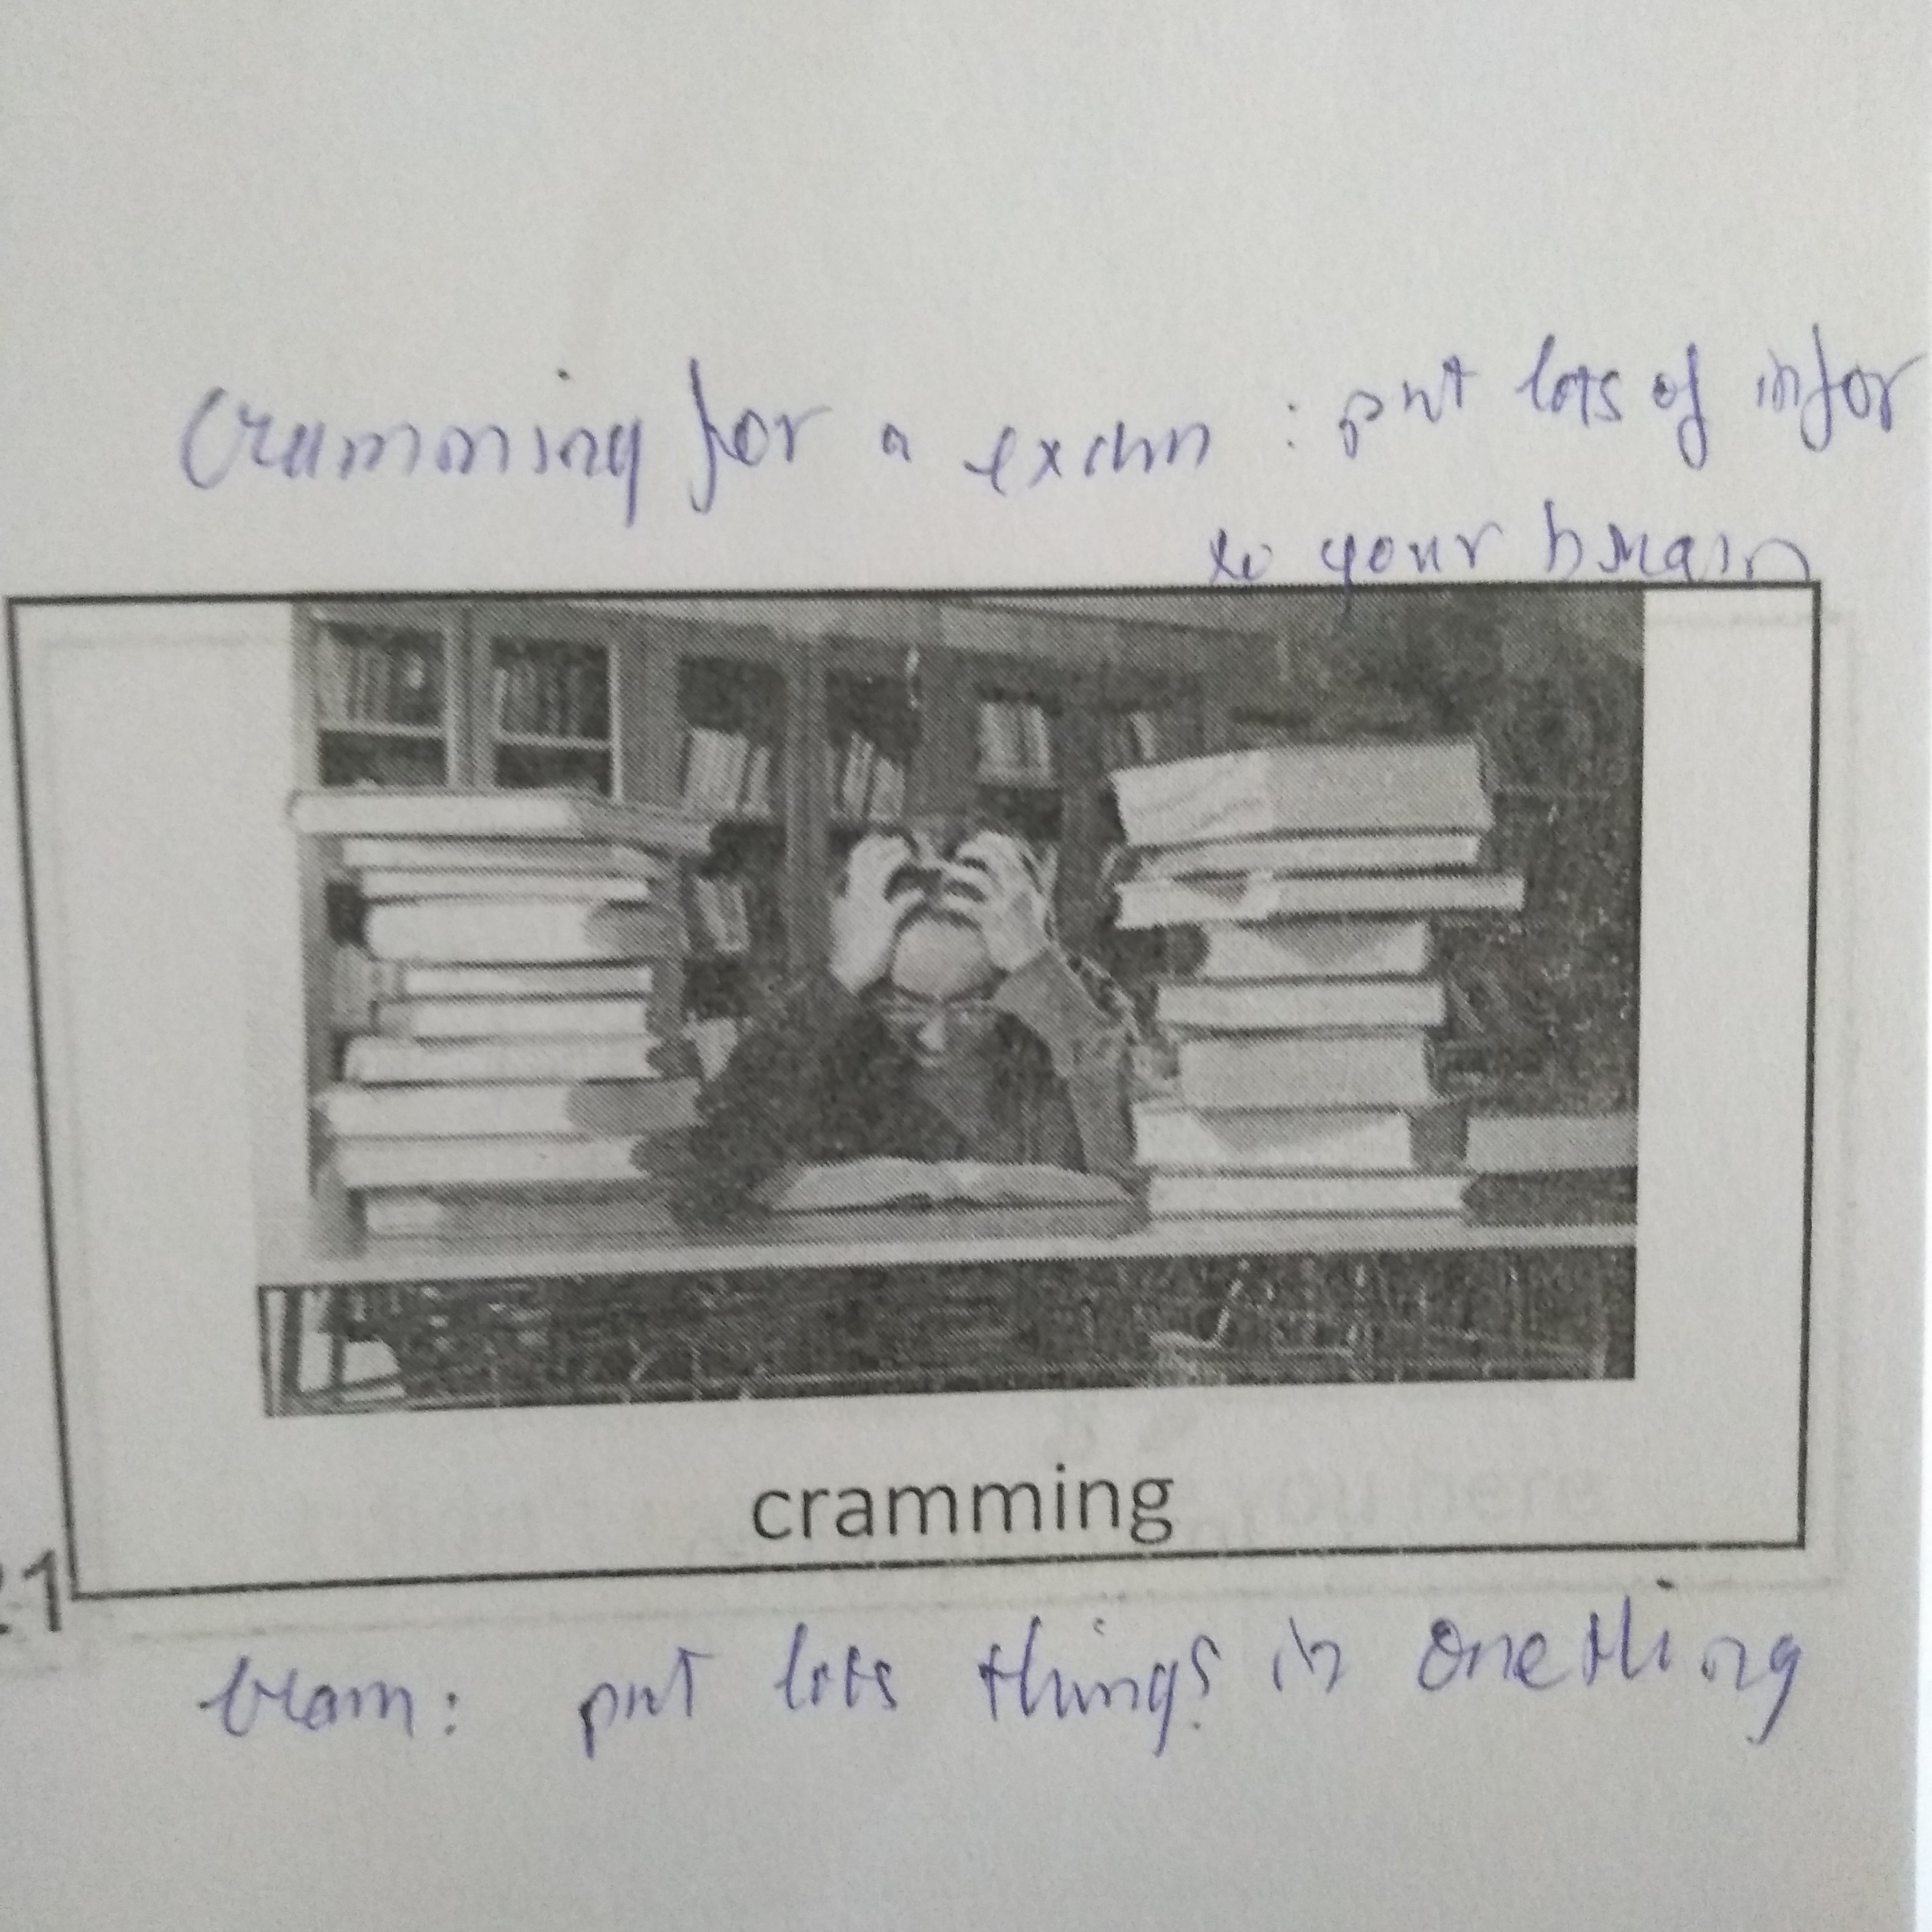 Cramming for a exam : put lots of infor
to your brain
cramming
21
cram: put lots things in one thing